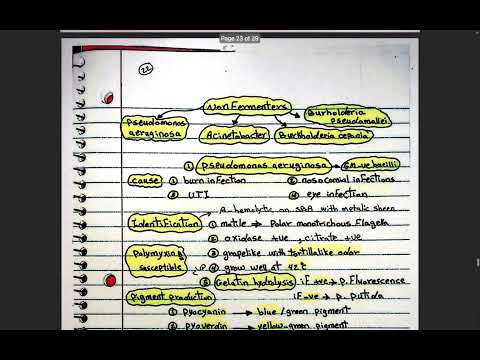 Page 23 of 29
22
Non Fermenters
Pseudomonas aeruginosa
Acinetobacter
Burkholderia cepacia
Burholderia pseudomallei
① pseudomonas aeruginosa → Gm -ve bacilli
cause ① burn infection ② nosocomial infections
③ UTI ④ eye infection
B-hemolytic on SBA with metalic sheen
Identification ① motile → Polar monotrichous Flagella
② oxidase +ve, citrate +ve
③ grapelike with tortillalike odor
Polymyxin susceptible
④ grow well at 42℃
⑤ Gelatin hydrolysis iF +ve → P. Fluorescence
iF -ve → p. putida
Pigment production
① pyocyanin → blue/green pigment
② pyoverdin → yellow-green pigment